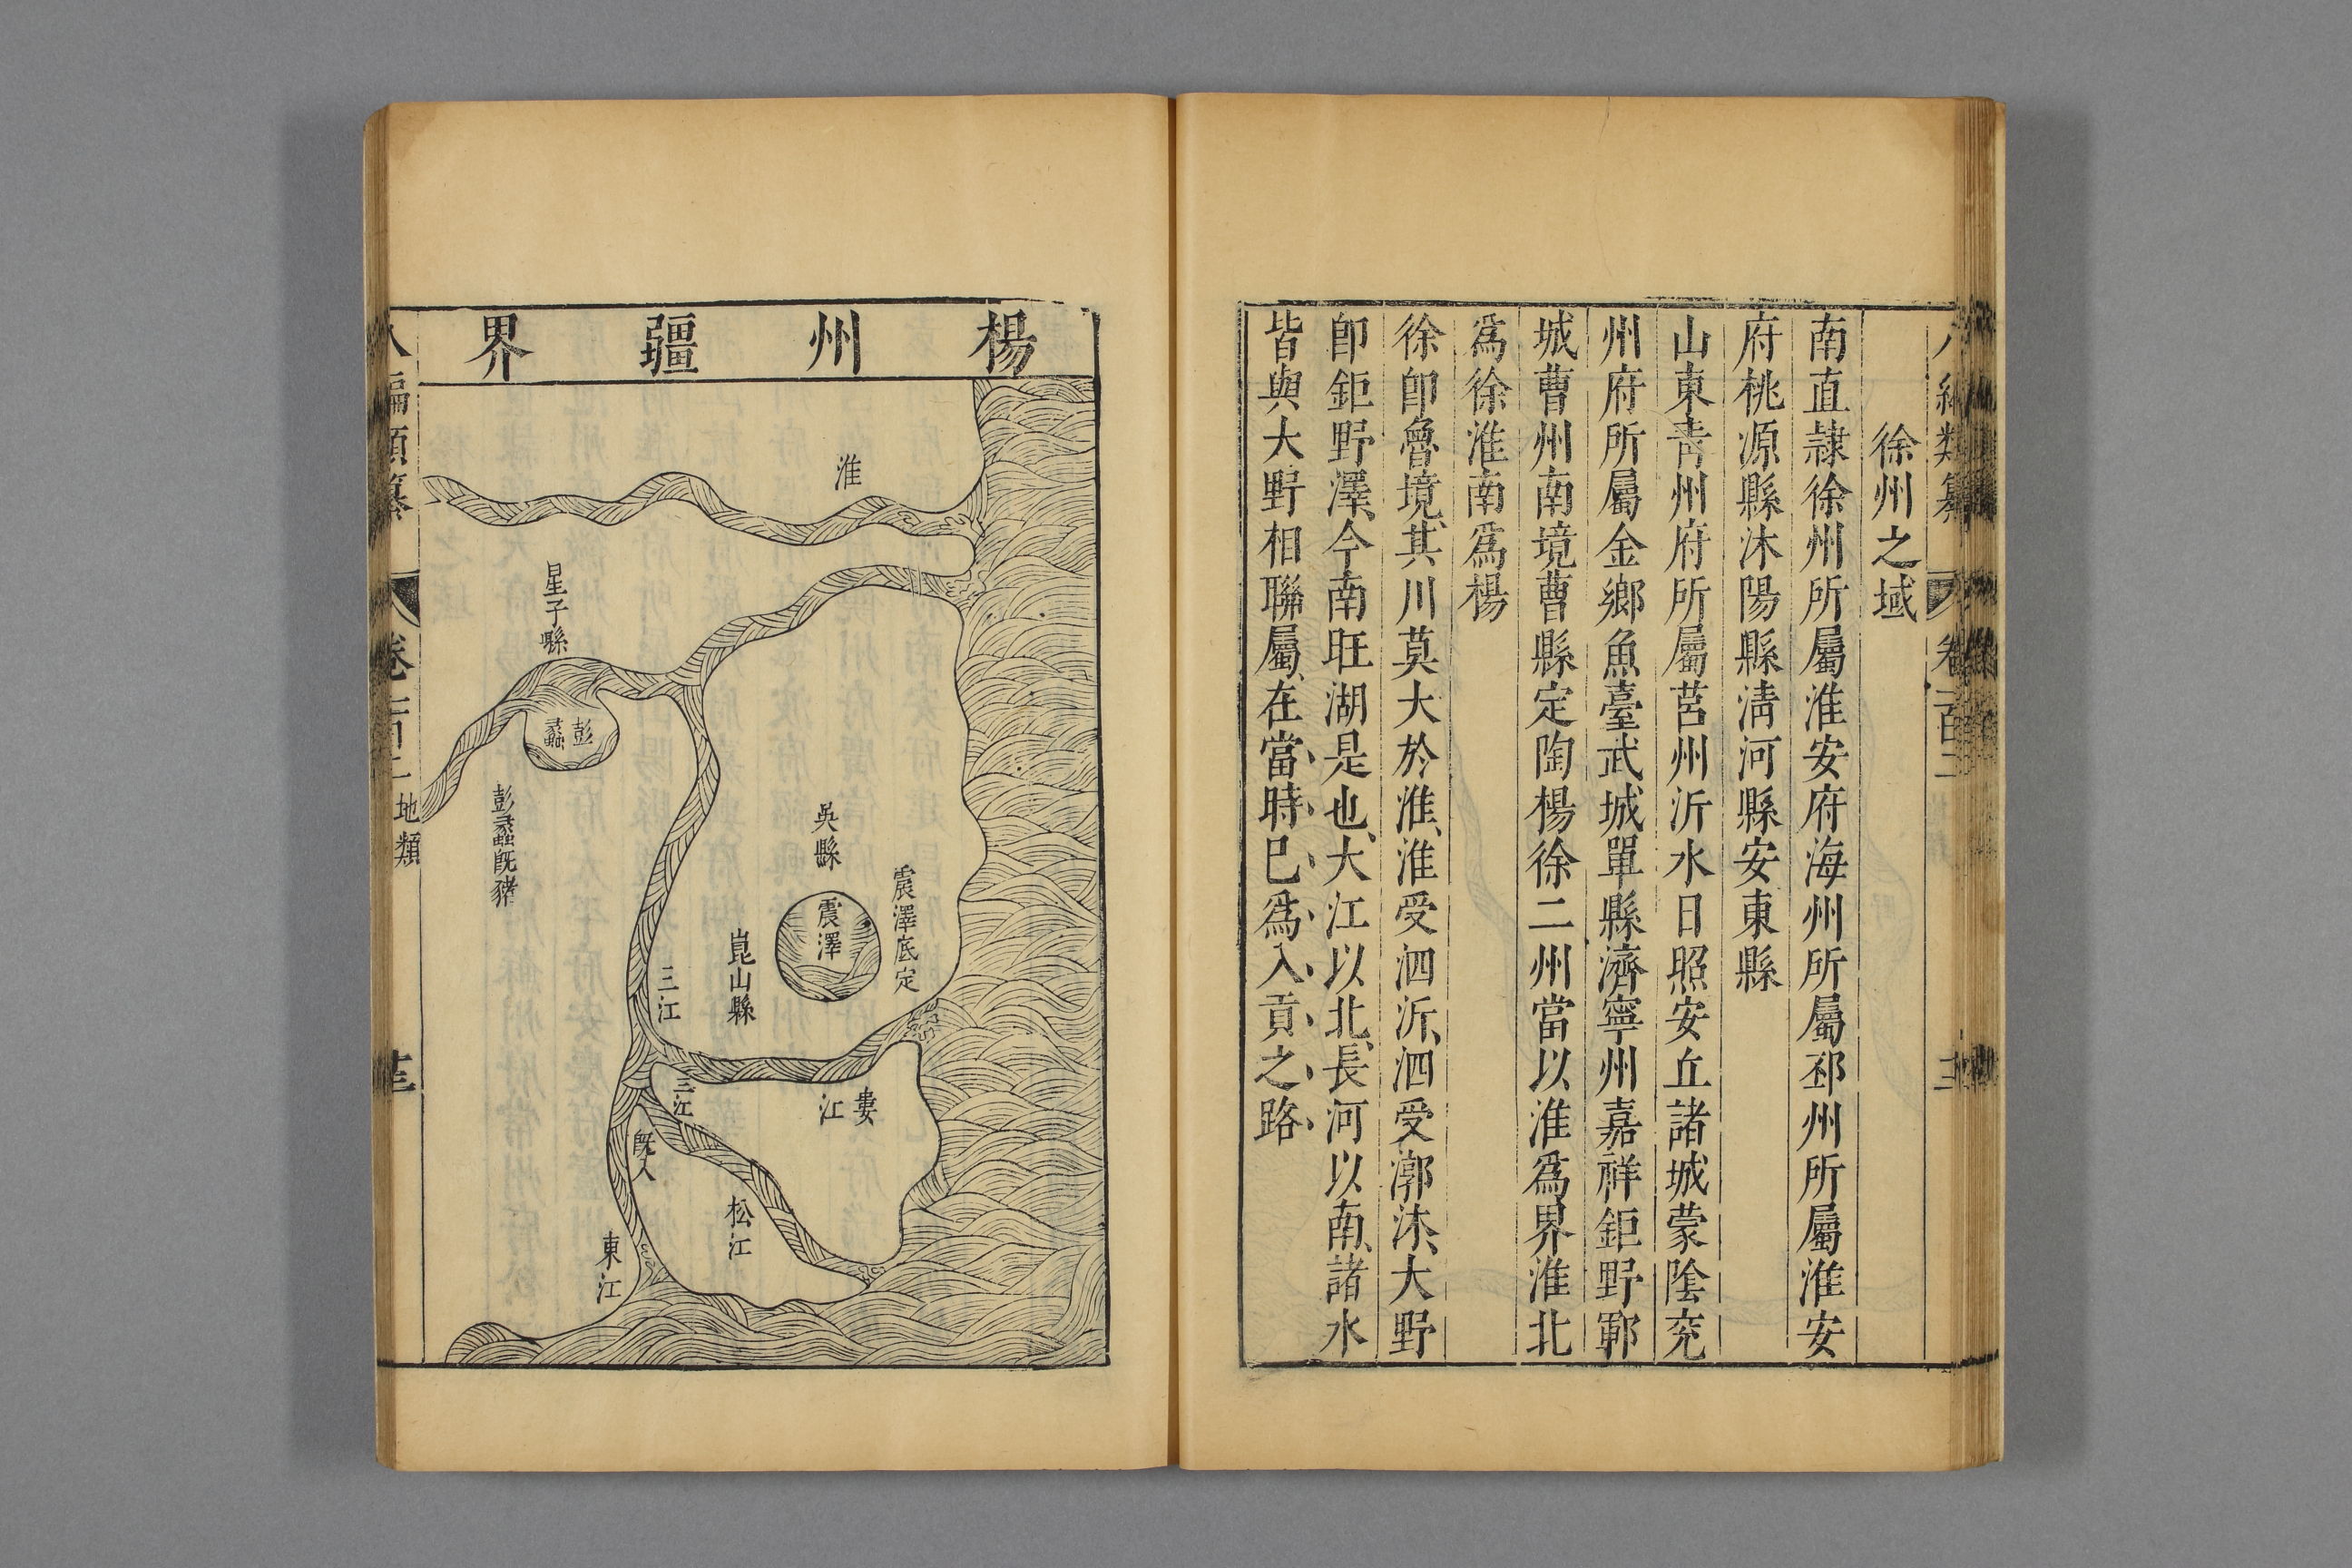 徐州之域
南直隷徐州所屬淮安府海州所屬邳州所屬淮安
府桃源縣沐陽縣淸河縣安東縣
山東靑州府所屬莒州沂水日照安丘諸城蒙隂兖
州府所屬金鄉魚臺武城單縣濟寧州嘉祥鉅野鄆
城曹州南境曹縣定陶楊徐二州當以淮爲界淮北
爲徐淮南爲楊
徐卽魯境、其川莫大於淮、淮受泗沂、泗受漷沐、大野
卽鉅野澤、今南旺湖是也、大江以北、長河以南、諸水
皆與大野相聯屬、在當時巳爲入貢之路
楊州疆界
淮
星子縣
彭蠡
彭蠡旣猪
吳縣
震澤
震澤底定
崑山縣
三江
三江
旣入
婁江
松江
東江
地類